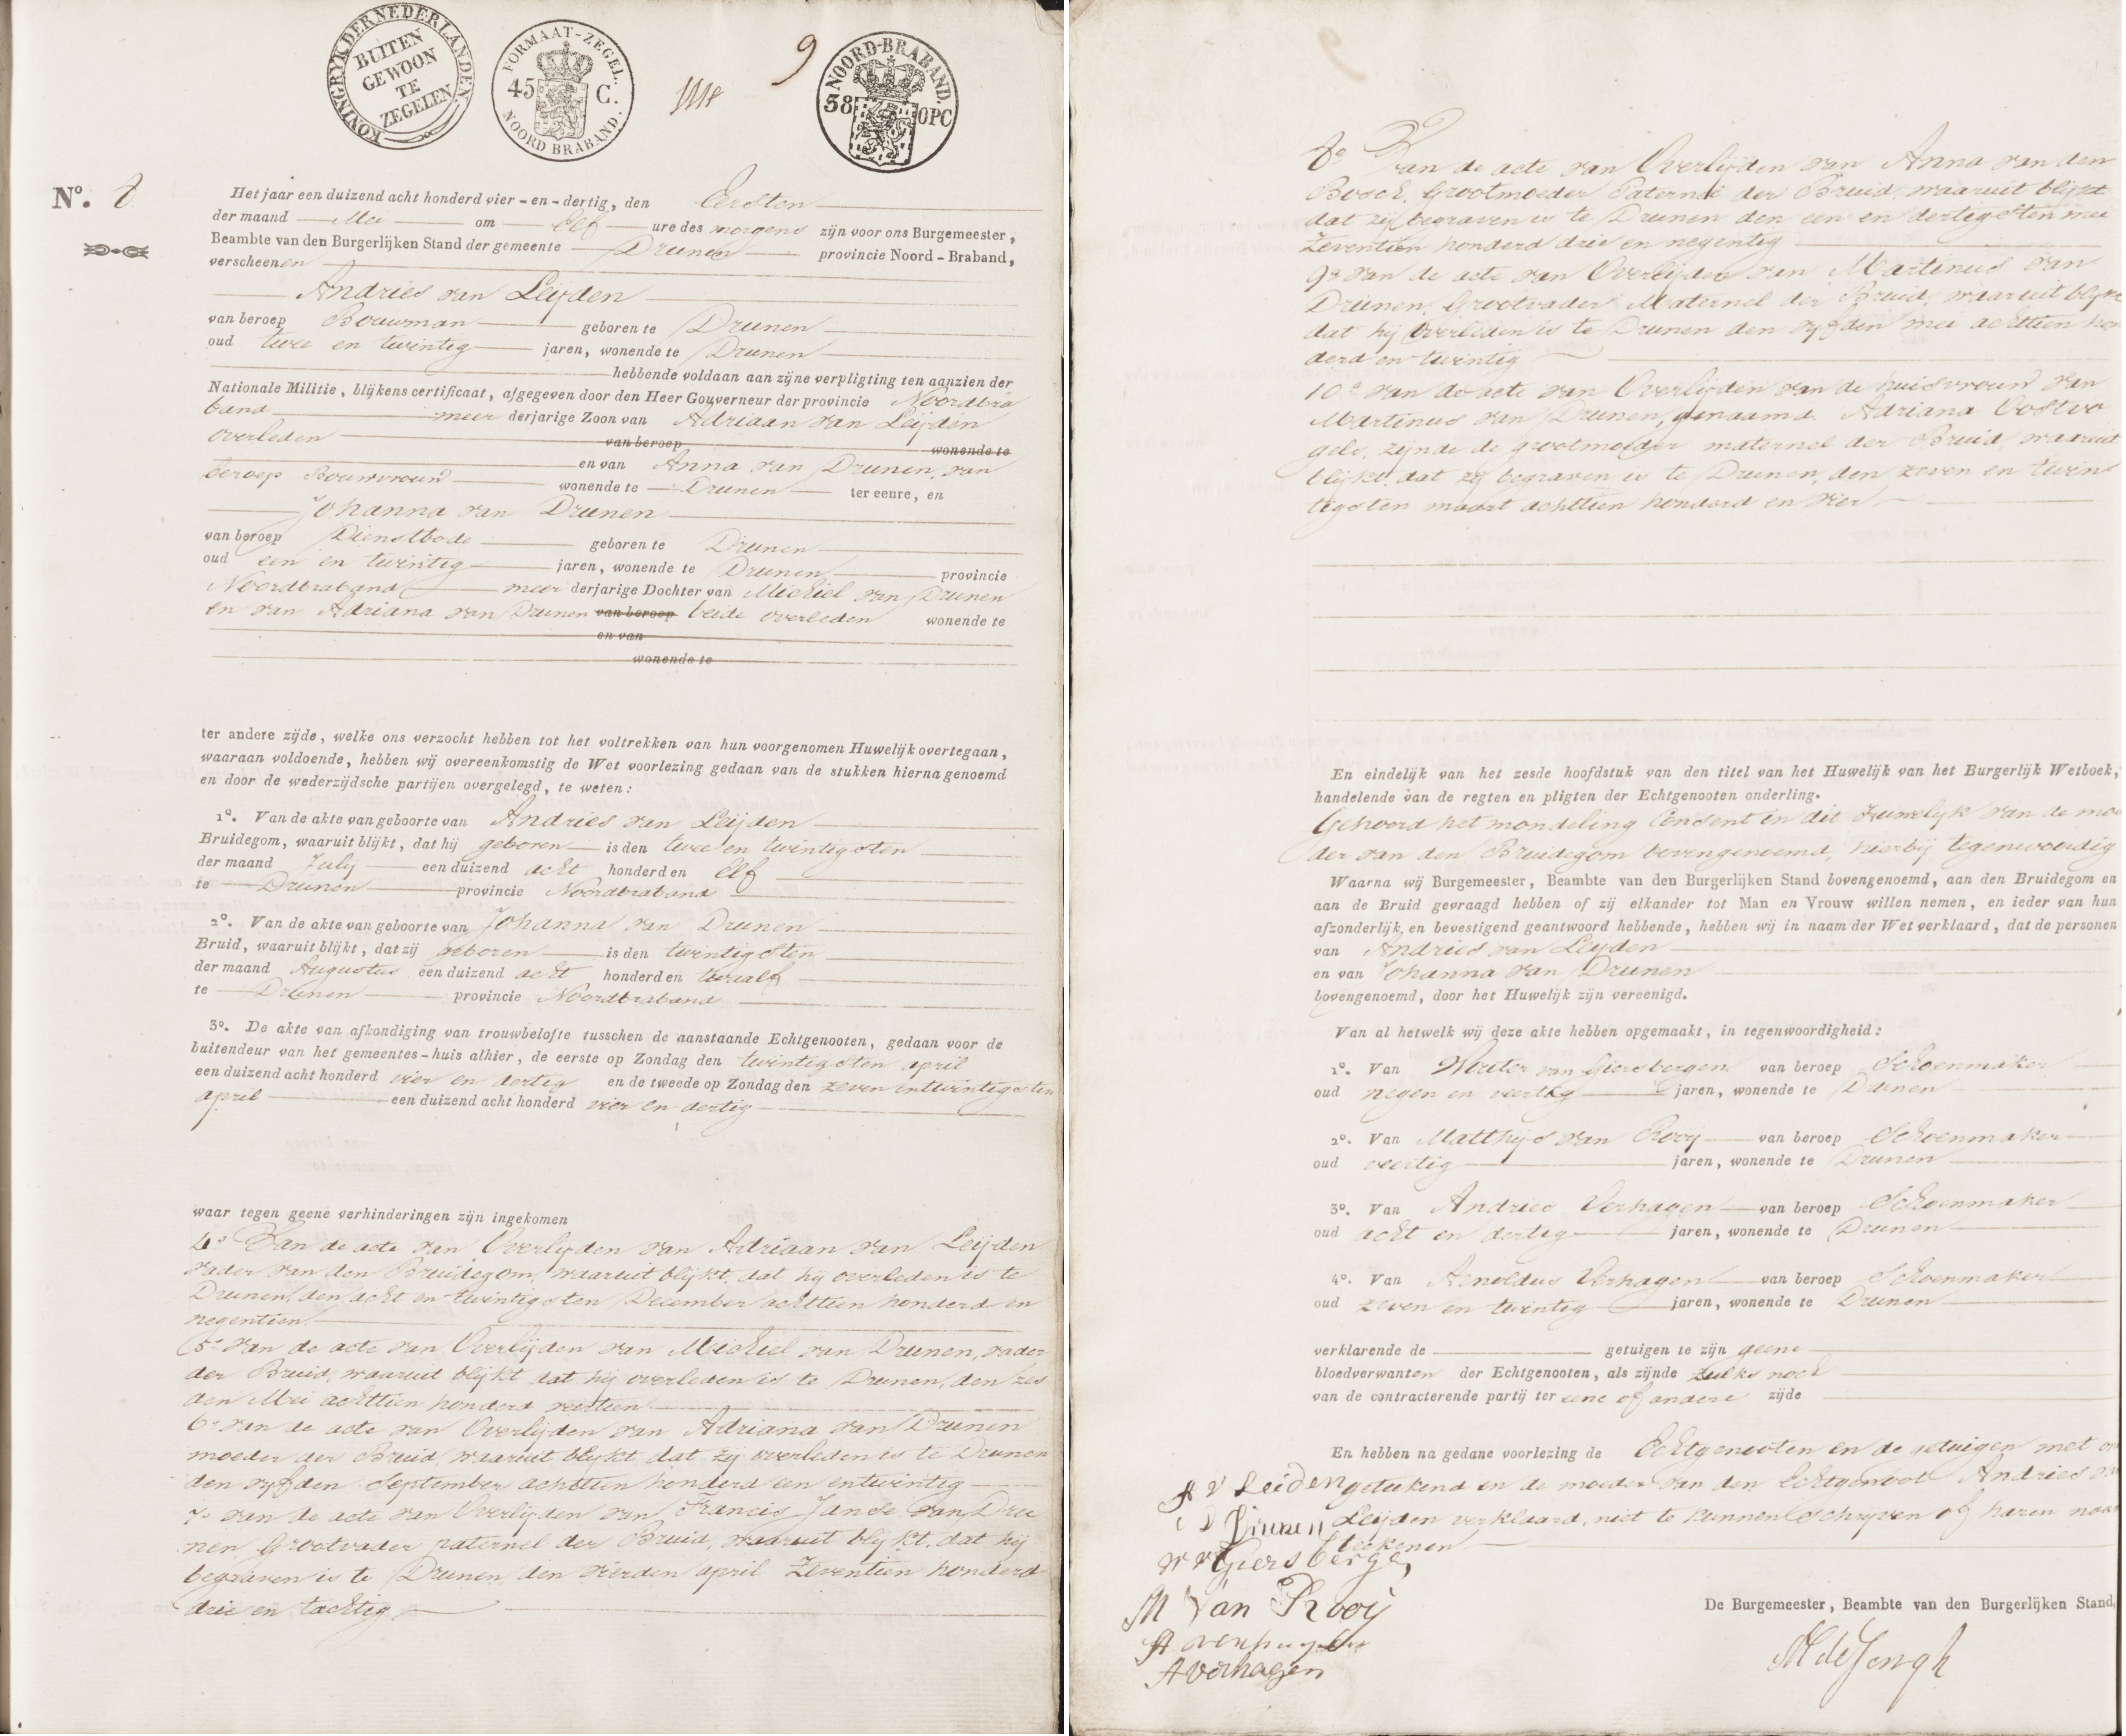 KONINGRYK DER NEDERLANDEN.
BUITEN
GEWOON
TE
ZEGELEN
FORMAAT-ZEGEL.
45 C.
NOORD BRABAND.
9
NOORD-BRABAND.
38 OPC
N.º 8
Het jaar een duizend acht honderd vier-en-dertig, den Eersten
der maand Mei om Elf ure des morgens zijn voor ons Burgemeester,
Beambte van den Burgerlijken Stand der gemeente Drunen provincie Noord-Braband,
verscheenen
Andries van Leijden
van beroep Bouwman geboren te Drunen
oud twee en twintig jaren, wonende te Drunen
hebbende voldaan aan zijne verpligting ten aanzien der
Nationale Militie, blijkens certificaat, afgegeven door den Heer Gouverneur der provincie Noordbra
band meer derjarige Zoon van Adriaan van Leijden
overleden van beroep wonende te
en van Anna van Drunen, van
beroep Bouwvrouw wonende te Drunen ter eenre, en
Johanna van Drunen
van beroep Dienstbode geboren te Drunen
oud een en twintig jaren, wonende te Drunen provincie
Noordbraband meer derjarige Dochter van Michiel van Drunen
en van Adriana van Drunen van beroep beide overleden wonende te
en van
wonende te
ter andere zijde, welke ons verzocht hebben tot het voltrekken van hun voorgenomen Huwelijk overtegaan,
waaraan voldoende, hebben wij overeenkomstig de Wet voorlezing gedaan van de stukken hierna genoemd
en door de wederzijdsche partijen overgelegd, te weten:
1º. Van de akte van geboorte van Andries van Leijden
Bruidegom, waaruit blijkt, dat hij geboren is den twee en twintigsten
der maand Julij een duizend acht honderd en Elf
te Drunen provincie Noordbraband
2º. Van de akte van geboorte van Johanna van Drunen
Bruid, waaruit blijkt, dat zij geboren is den twintigsten
der maand Augustus een duizend acht honderd en twaalf
te Drunen provincie Noordbraband
3º. De akte van afkondiging van trouwbelofte tusschen de aanstaande Echtgenooten, gedaan voor de
buitendeur van het gemeentes-huis alhier, de eerste op Zondag den twintigsten april
een duizend acht honderd vier en dertig en de tweede op Zondag den zeven en twintigsten
april een duizend acht honderd vier en dertig
waar tegen geene verhinderingen zijn ingekomen
4º Van de acte van Overlijden van Adriaan van Leijden
vader van den Bruidegom, waaruit blijkt, dat hij overleden is te
Drunen, den acht en twintigsten December achttien honderd en
negentien
5º van de acte van Overlijden van Michiel van Drunen, vader
der Bruid, waaruit blijkt dat hij overleden is te Drunen, den zes
den Mei achttien honderd veertien
6º van de acte van Overlijden van Adriana van Drunen
moeder der Bruid, waaruit blijkt dat zij overleden is te Drunen
den vyfden September achttien honderd een entwintig
7º van de acte van Overlijden van Francis Janse van Dru
nen, Grootvader paternel der Bruid, waaruit blijkt, dat hij
begraven is te Drunen den vierden april Zeventien honderd
drie en tachtig
8º Van de acte van Overlijden van Anna van den
Bosch, Grootmoeder Paternel der Bruid, waaruit blijkt
dat zij begraven is te Drunen den een en dertigsten mei
Zeventien honderd drie en negentig
9º van de acte van Overlijden van Martinus van
Drunen, Grootvader Maternel der Bruid, waaruit blijkt
dat hij Overleden is te Drunen den vyfden mei achttien hon
derd en twintig
10º van de acte van Overlijden van de huisvrouw van
Martinus van Drunen, genaamd Adriana Oostvo
gels, zijnde de grootmoeder maternel der Bruid waaruit
blijkt dat zij begraven is te Drunen, den zeven en twin
tigsten maart achttien honderd en vier
En eindelijk van het zesde hoofdstuk van den titel van het Huwelijk van het Burgerlijk Wetboek,
handelende van de regten en pligten der Echtgenooten onderling.
Gehoord het mondeling Consent in dit Huwelijk van de moe
der van den Bruidegom bovengenoemd, hierbij tegenwoordig
Waarna wij Burgemeester, Beambte van den Burgerlijken Stand bovengenoemd, aan den Bruidegom en
aan de Bruid gevraagd hebben of zij elkander tot Man en Vrouw willen nemen, en ieder van hun
afzonderlijk en bevestigend geantwoord hebbende, hebben wij in naam der Wet verklaard, dat de personen
van Andries van Leijden
en van Johanna van Drunen
bovengenoemd, door het Huwelijk zijn vereenigd.
Van al hetwelk wij deze akte hebben opgemaakt, in tegenwoordigheid:
1º. Van Wouter van Giersbergen van beroep Schoenmaker
oud negen en veertig jaren, wonende te Drunen
2º. Van Matthijs van Rooij van beroep Schoenmaker
oud veertig jaren, wonende te Drunen
3º. Van Andries Verhagen van beroep Schoenmaker
oud acht en dertig jaren, wonende te Drunen
4º. Van Arnoldus Verhagen van beroep Schoenmaker
oud zeven en twintig jaren, wonende te Drunen
verklarende de getuigen te zijn geene
bloedverwanten der Echtgenooten, als zijnde zulks noch
van de contracterende partij ter eene of andere zijde
En hebben na gedane voorlezing de Echtgenooten en de getuigen met ons
A V Leiden geteekend en de moeder van den Echtgenoot Andries van
Drunen Leijden verklaard, niet te kunnen Schrijven of haren naam
teekenen
W V Giersberge
M Van Rooij
A Verhagen
De Burgemeester, Beambte van den Burgerlijken Stand,
de Jongh